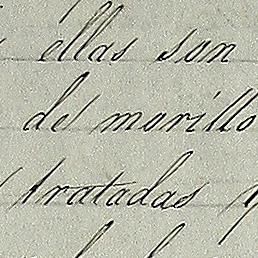 ellas son
des morillo
tratadas y